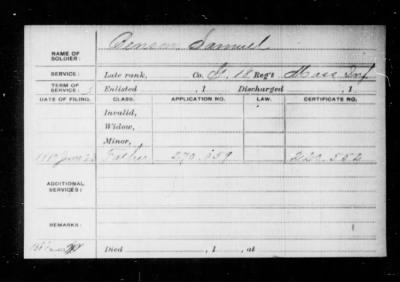 NAME OF
SOLDIER:
Benson Samuel
SERVICE:
Late rank, Co. 18 Reg't Mass Inf
TERM OF
SERVICE:
Enlisted , 1 Discharged , 1
DATE OF FILING. CLASS. APPLICATION NO. LAW. CERTIFICATE NO.
Invalid,
Widow,
Minor,
June Father 270.659 220.552
ADDITIONAL
SERVICES:
REMARKS:
Died , 1 , at